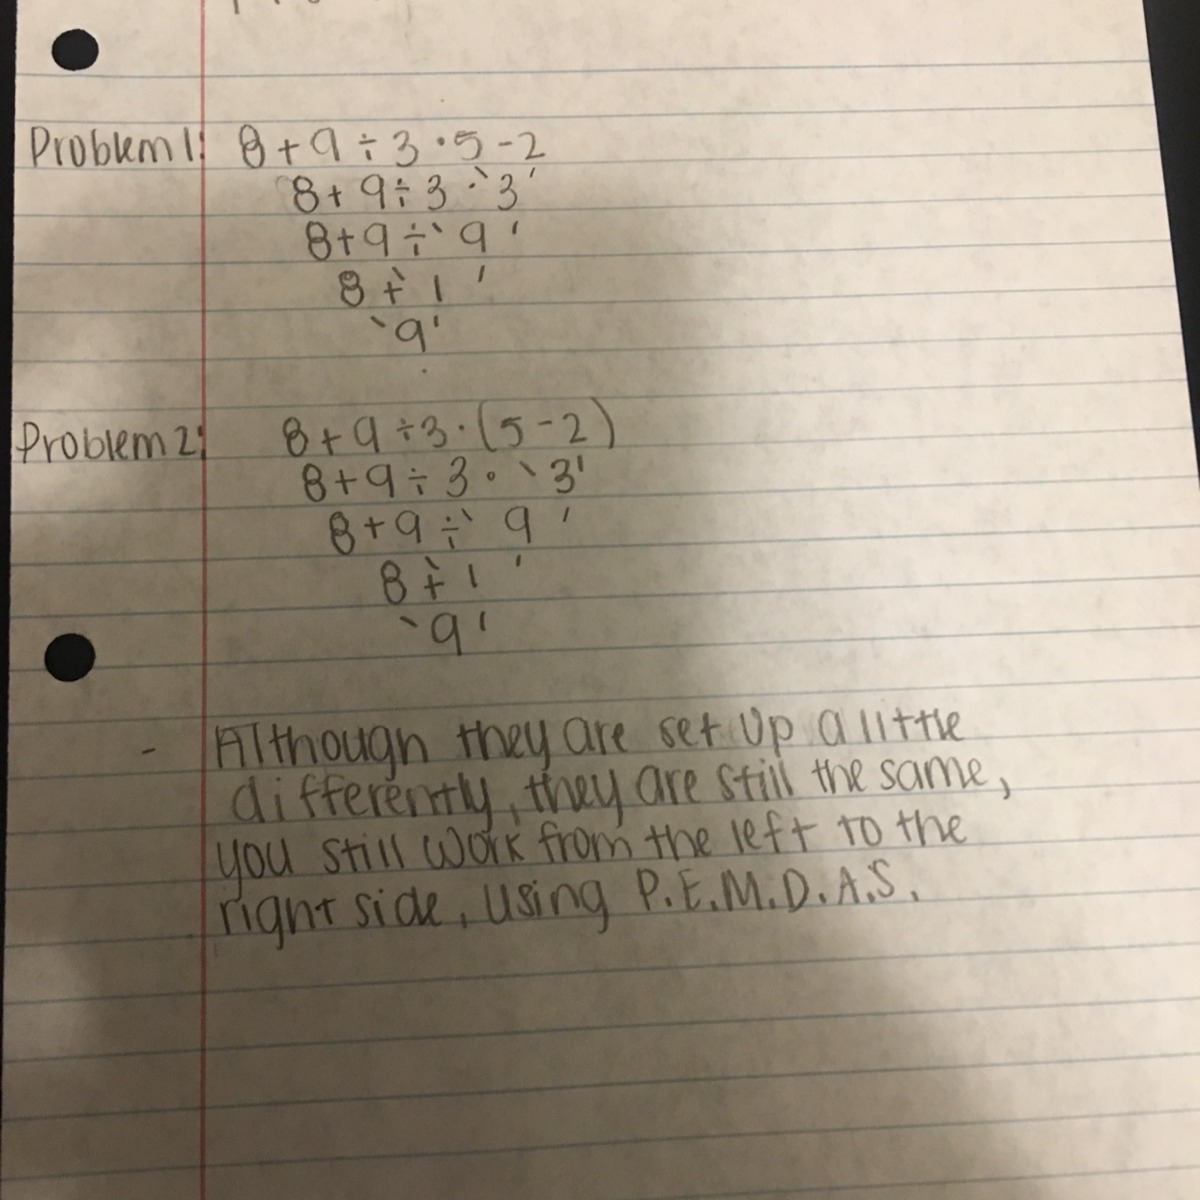 Problem 1: 8 + 9 ÷ 3 · 5 - 2
8 + 9 ÷ 3 · `3'
8 + 9 ÷ `9'
8 + `1'
`9'
Problem 2: 8 + 9 ÷ 3 · (5 - 2)
8 + 9 ÷ 3 · `3'
8 + 9 ÷ `9'
8 + `1'
`9'
- Although they are set up a little
differently, they are still the same,
you still work from the left to the
right side, using P.E.M.D.A.S.